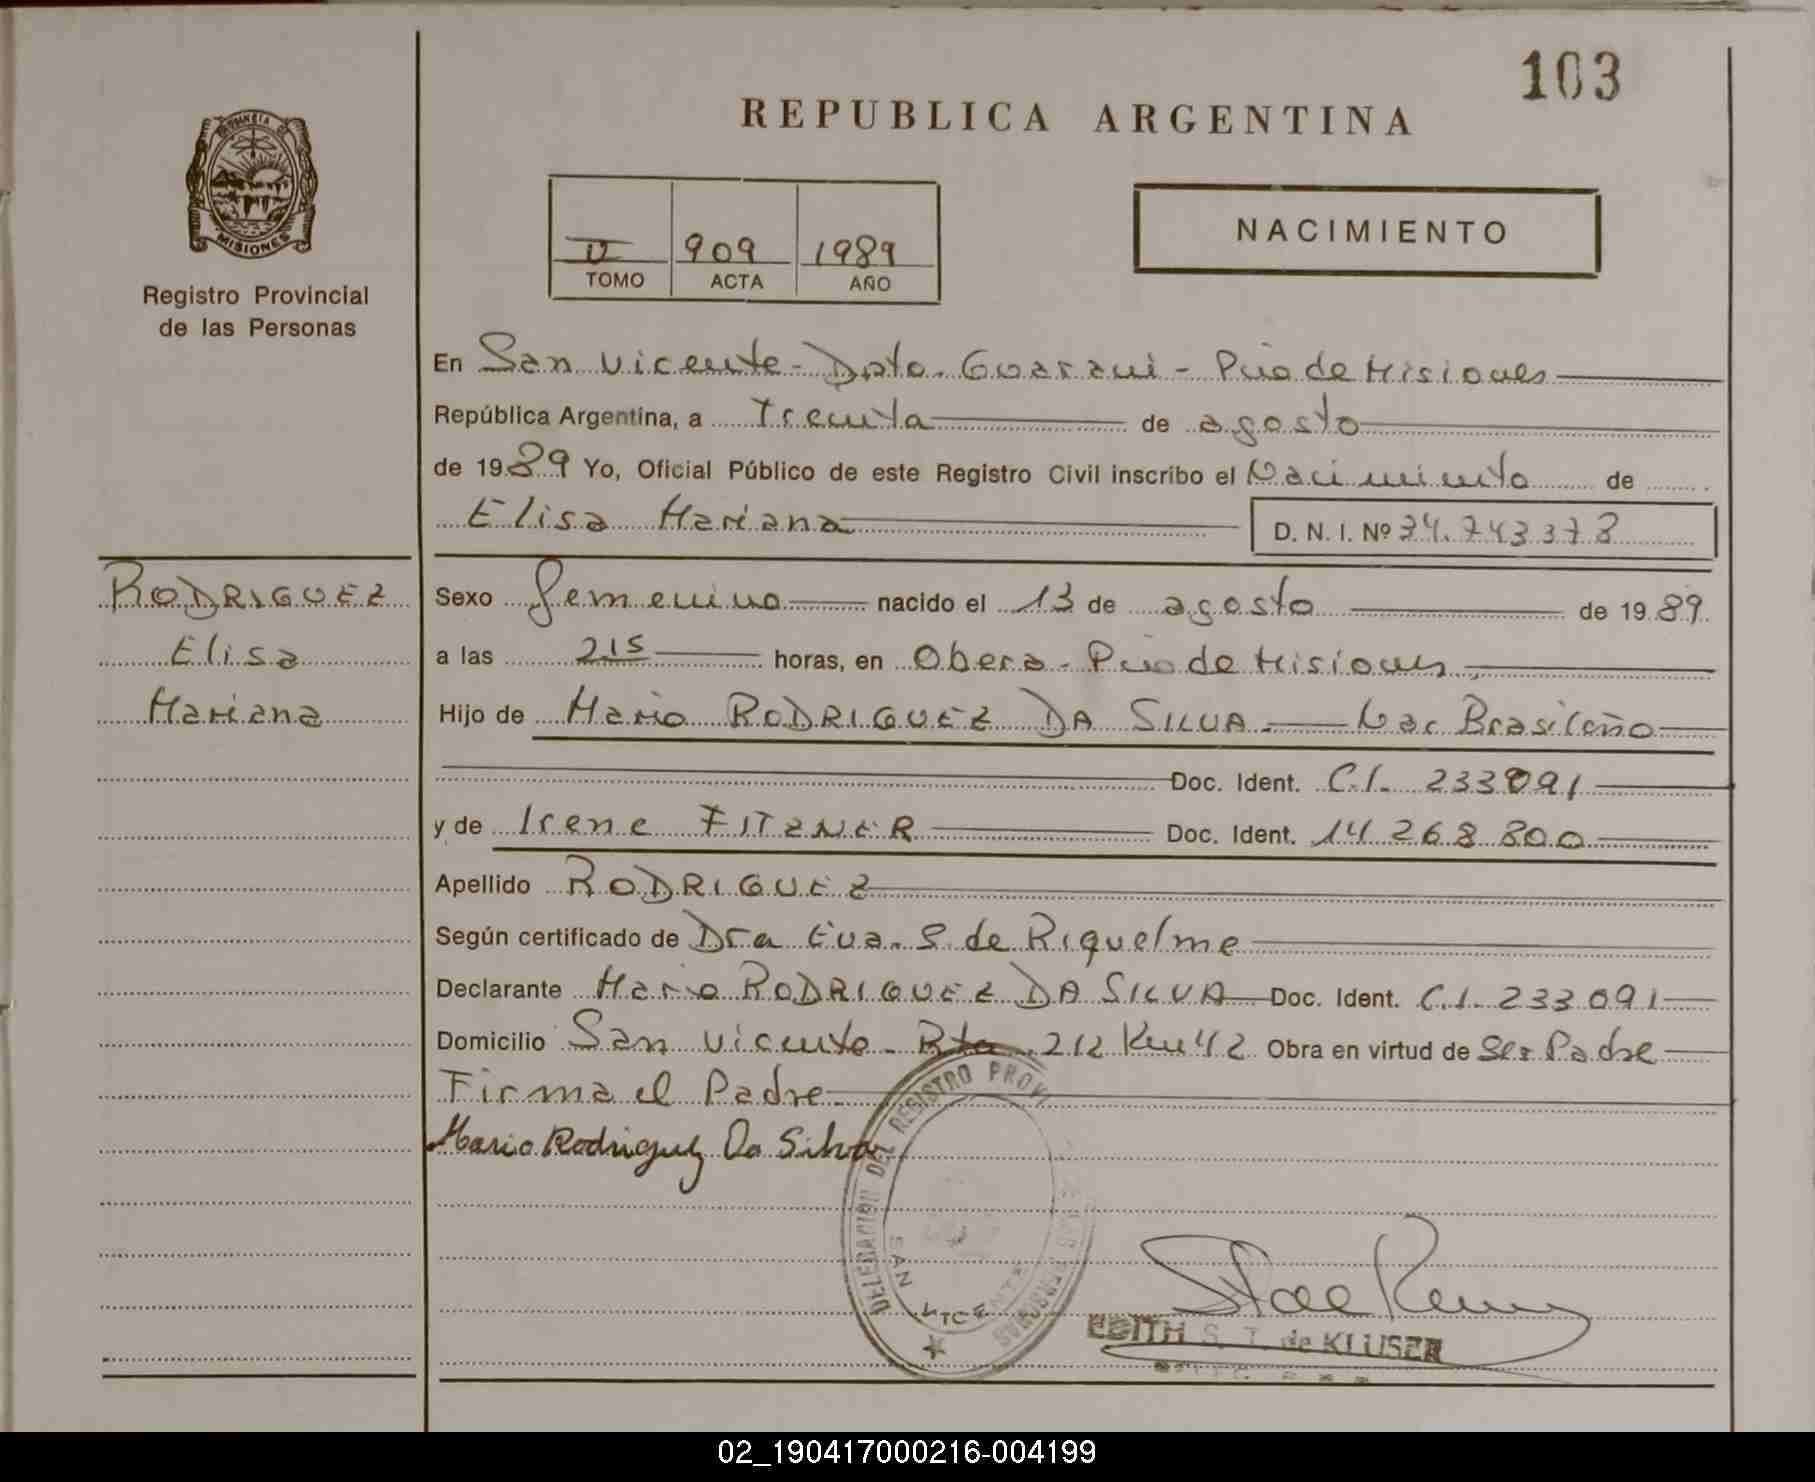 103
REPUBLICA ARGENTINA
PROVINCIA DE
MISIONES
Registro Provincial
de las Personas
II 909 1989
TOMO ACTA AÑO
NACIMIENTO
En San Vicente - Dpto. Guarani - Pcia de Misiones
República Argentina, a Treinta de agosto
de 1989 Yo, Oficial Público de este Registro Civil inscribo el Nacimiento de
Elisa Mariana D. N. I. Nº 34.743378
RODRIGUEZ
Elisa
Mariana
Sexo Femenino nacido el 13 de agosto de 1989.
a las 2.15 horas, en Obera - Pcia de Misiones
Hijo de Mario RODRIGUEZ DA SILVA - Nac Brasileño
Doc. Ident. C.I. 233091
y de Irene FITZNER Doc. Ident. 14.268.800
Apellido RODRIGUEZ
Según certificado de Dra Eva. S. de Riquelme
Declarante Mario RODRIGUEZ DA SILVA Doc. Ident. C.I. 233091
Domicilio San Vicente - Rta. 212 Km 42 Obra en virtud de Ser Padre
Firma el Padre
Mario Rodriguez Da Silva
DELEGACION DEL REGISTRO PROVI DE LAS PERSONAS
SAN VICENTE
EDITH S. T. de KLUSER
02_190417000216-004199